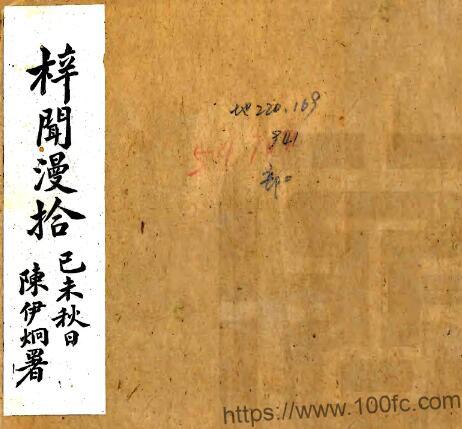 梓聞漫拾
己未秋日
陳伊炯署
地220.169
941
https://www.100fc.com